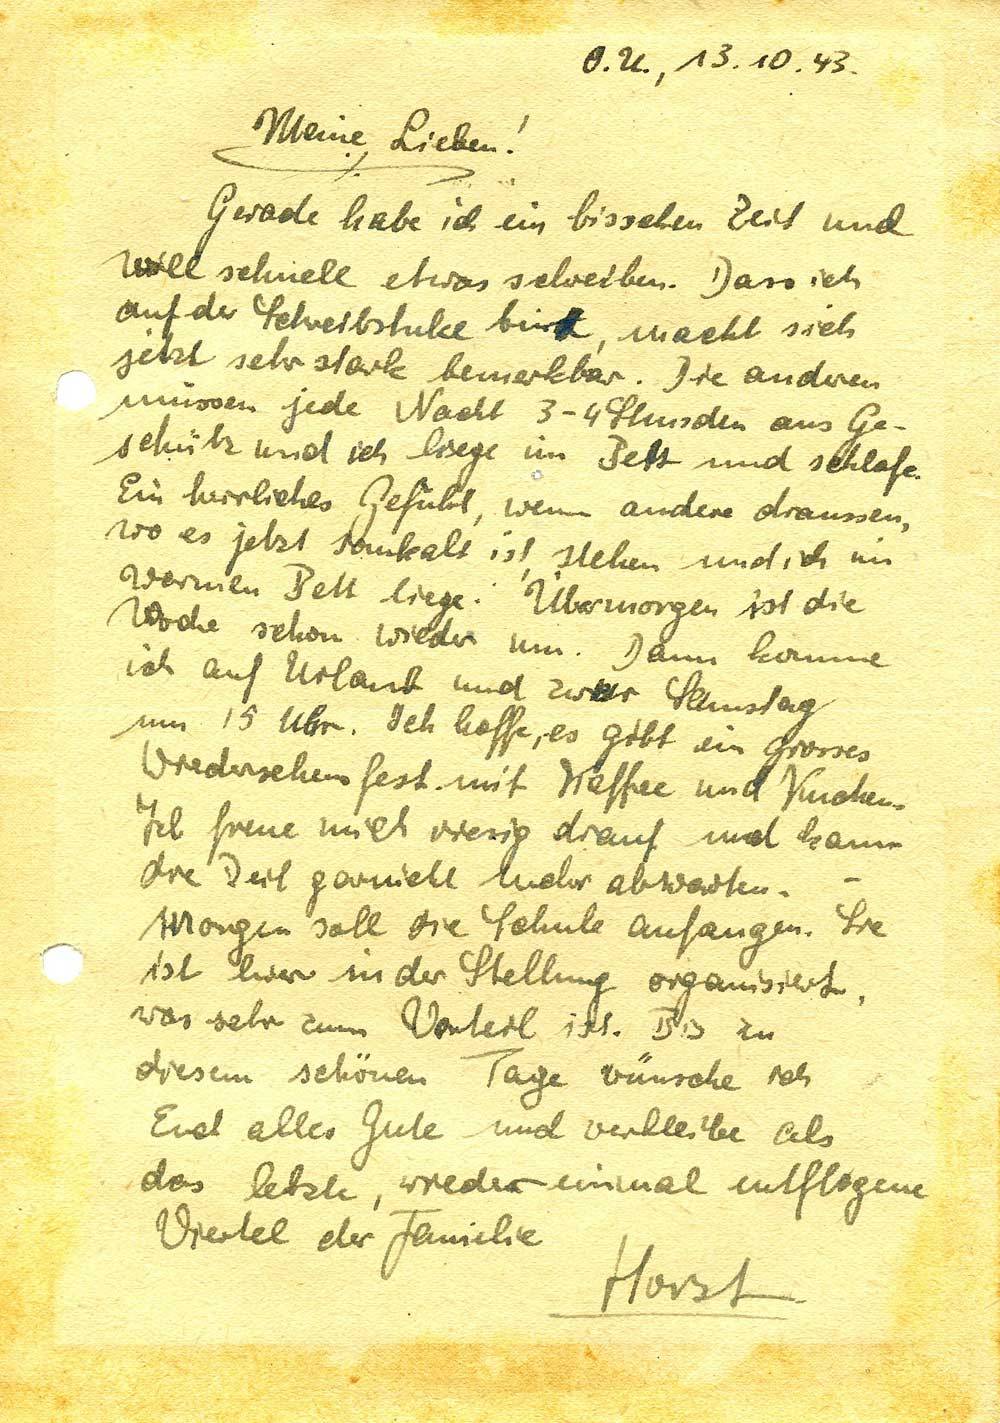 O.U., 13.10.43.
Meine Lieben!
Gerade habe ich ein bisschen Zeit und
will schnell etwas schreiben. Dass ich
auf der Schreibstube bin, macht sich
jetzt sehr stark bemerkbar. Die anderen
müssen jede Nacht 3-4 Stunden ans Ge-
schütz und ich liege im Bett und schlafe.
Ein herrliches Gefühl, wenn andere draussen,
wo es jetzt saukalt ist, stehen und ich im
warmen Bett liege. Übermorgen ist die
Woche schon wieder um. Dann komme
ich auf Urlaub und zwar Samstag
um 15 Uhr. Ich hoffe, es gibt ein grosses
Wiedersehensfest mit Kaffee und Kuchen.
Ich freue mich riesig drauf und kann
die Zeit garnicht mehr abwarten. –
Morgen soll die Schule anfangen. Sie
ist hier in der Stellung organisiert,
was sehr zum Vorteil ist. Bis zu
diesem schönen Tage wünsche ich
Euch alles Gute und verbleibe als
das letzte, wieder einmal entflogene
Viertel der Familie
Horst